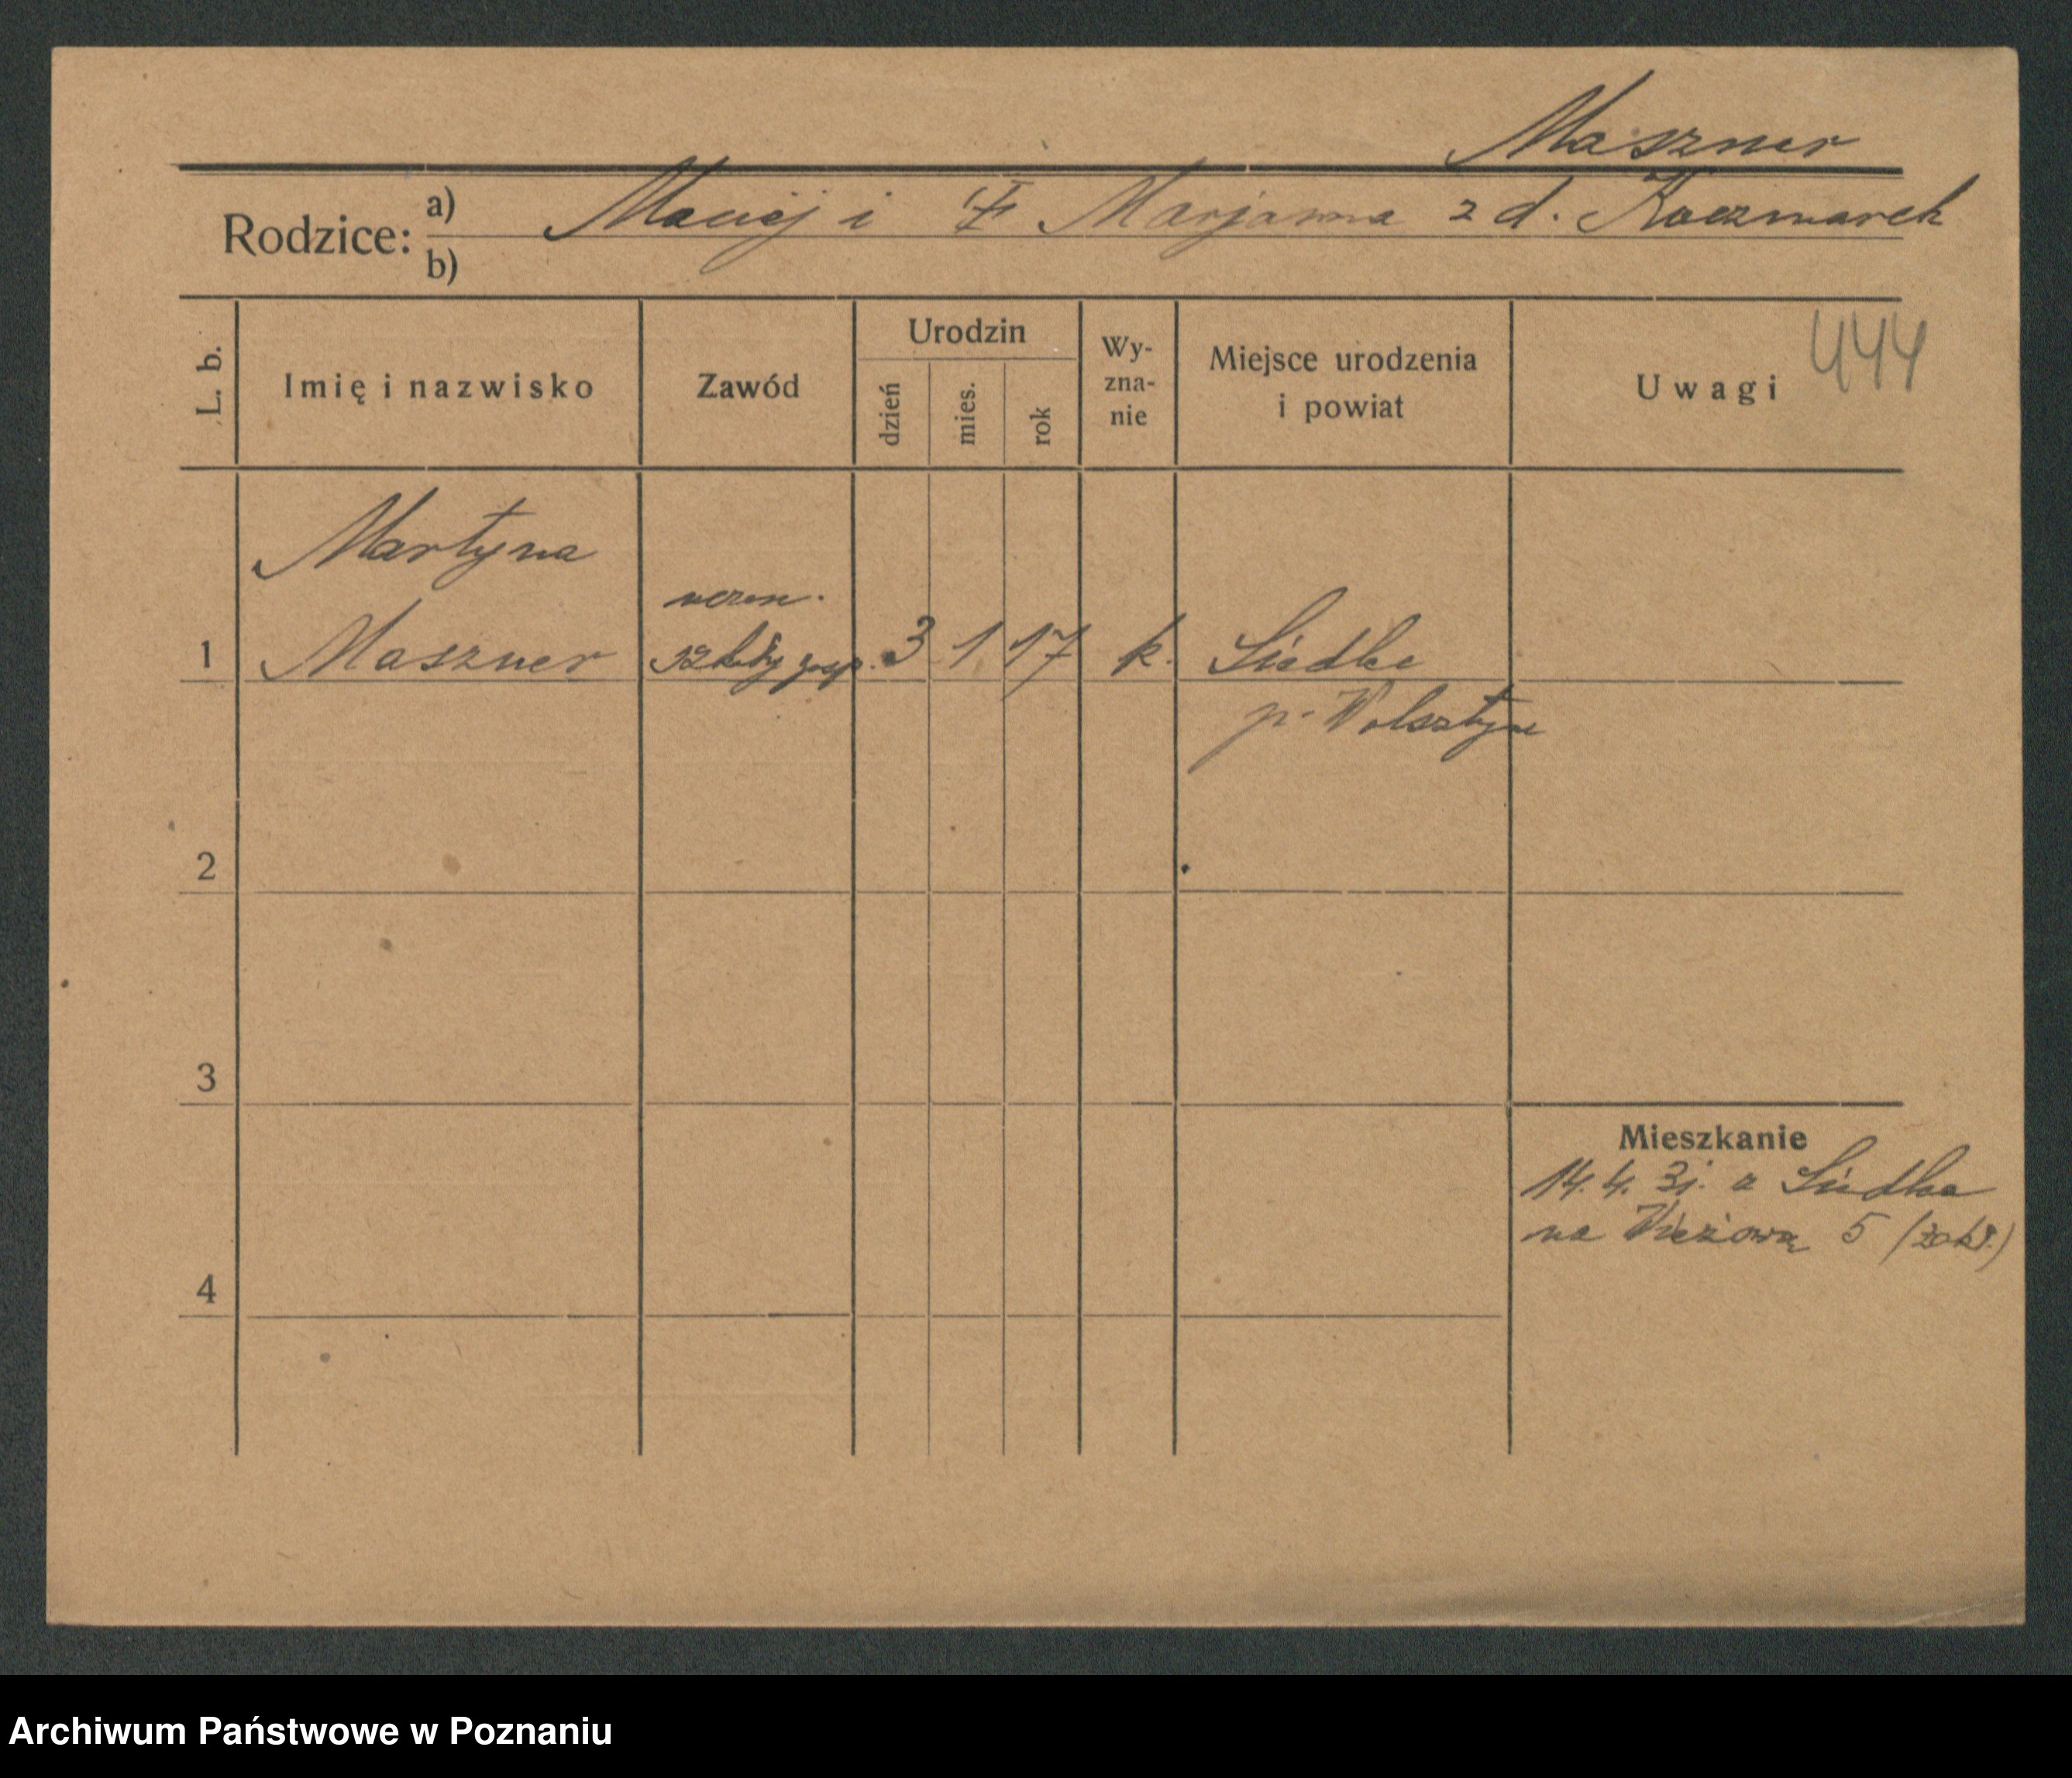 Maszner
Rodzice: a) Maciej i Marjanna z d. Kaczmarek
b)
L. b.
Imię i nazwisko
Zawód
Urodzin
dzień
mies.
rok
Wy-
zna-
nie
Miejsce urodzenia
i powiat
Uwagi
444
Martyna
uczen.
1 Maszner szkoły gosp. 3 1 17 k. Siedlec
p. Wolsztyn
2
3
4
Mieszkanie
14. 4. 31. z Siedlca
na Wieżową 5 (zakł.)
Archiwum Państwowe w Poznaniu